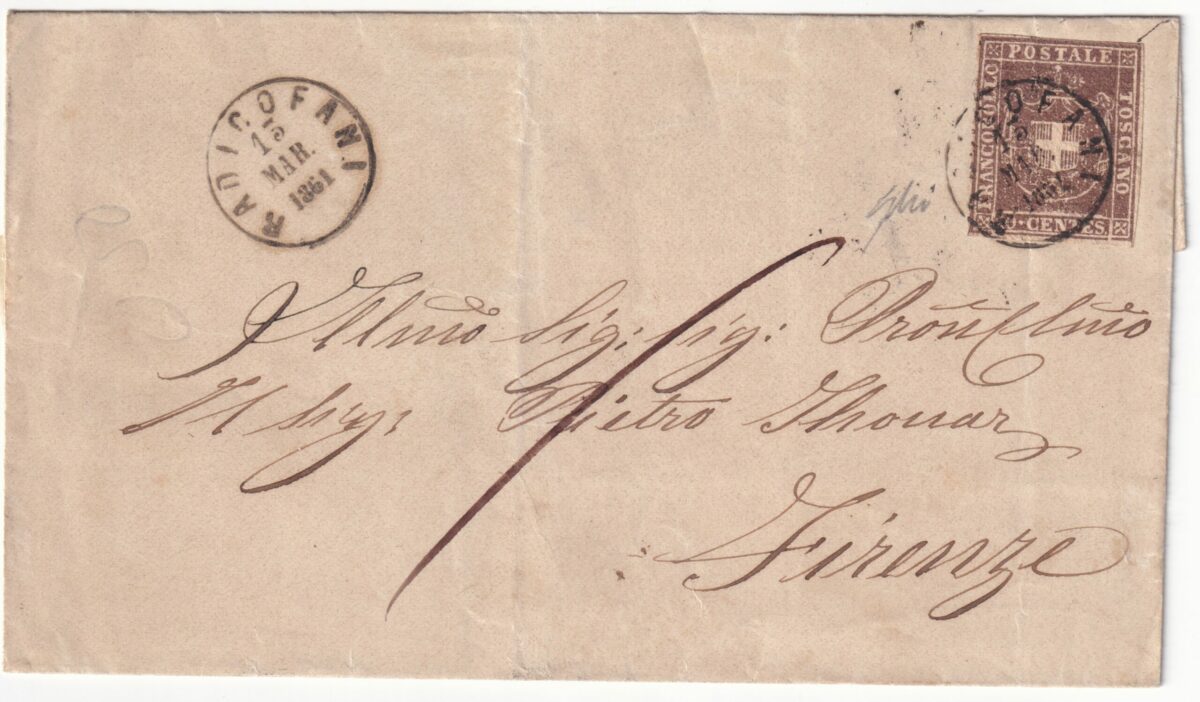 RADICOFANI
15
MAR.
1861
POSTALE
FRANCOBOLLO
TOSCANO
10 CENTES
COFANI
15
MAR
1861
Illmo Sig: Sig: Pron Clmo
Il Sig: Pietro Thouar
Firenze